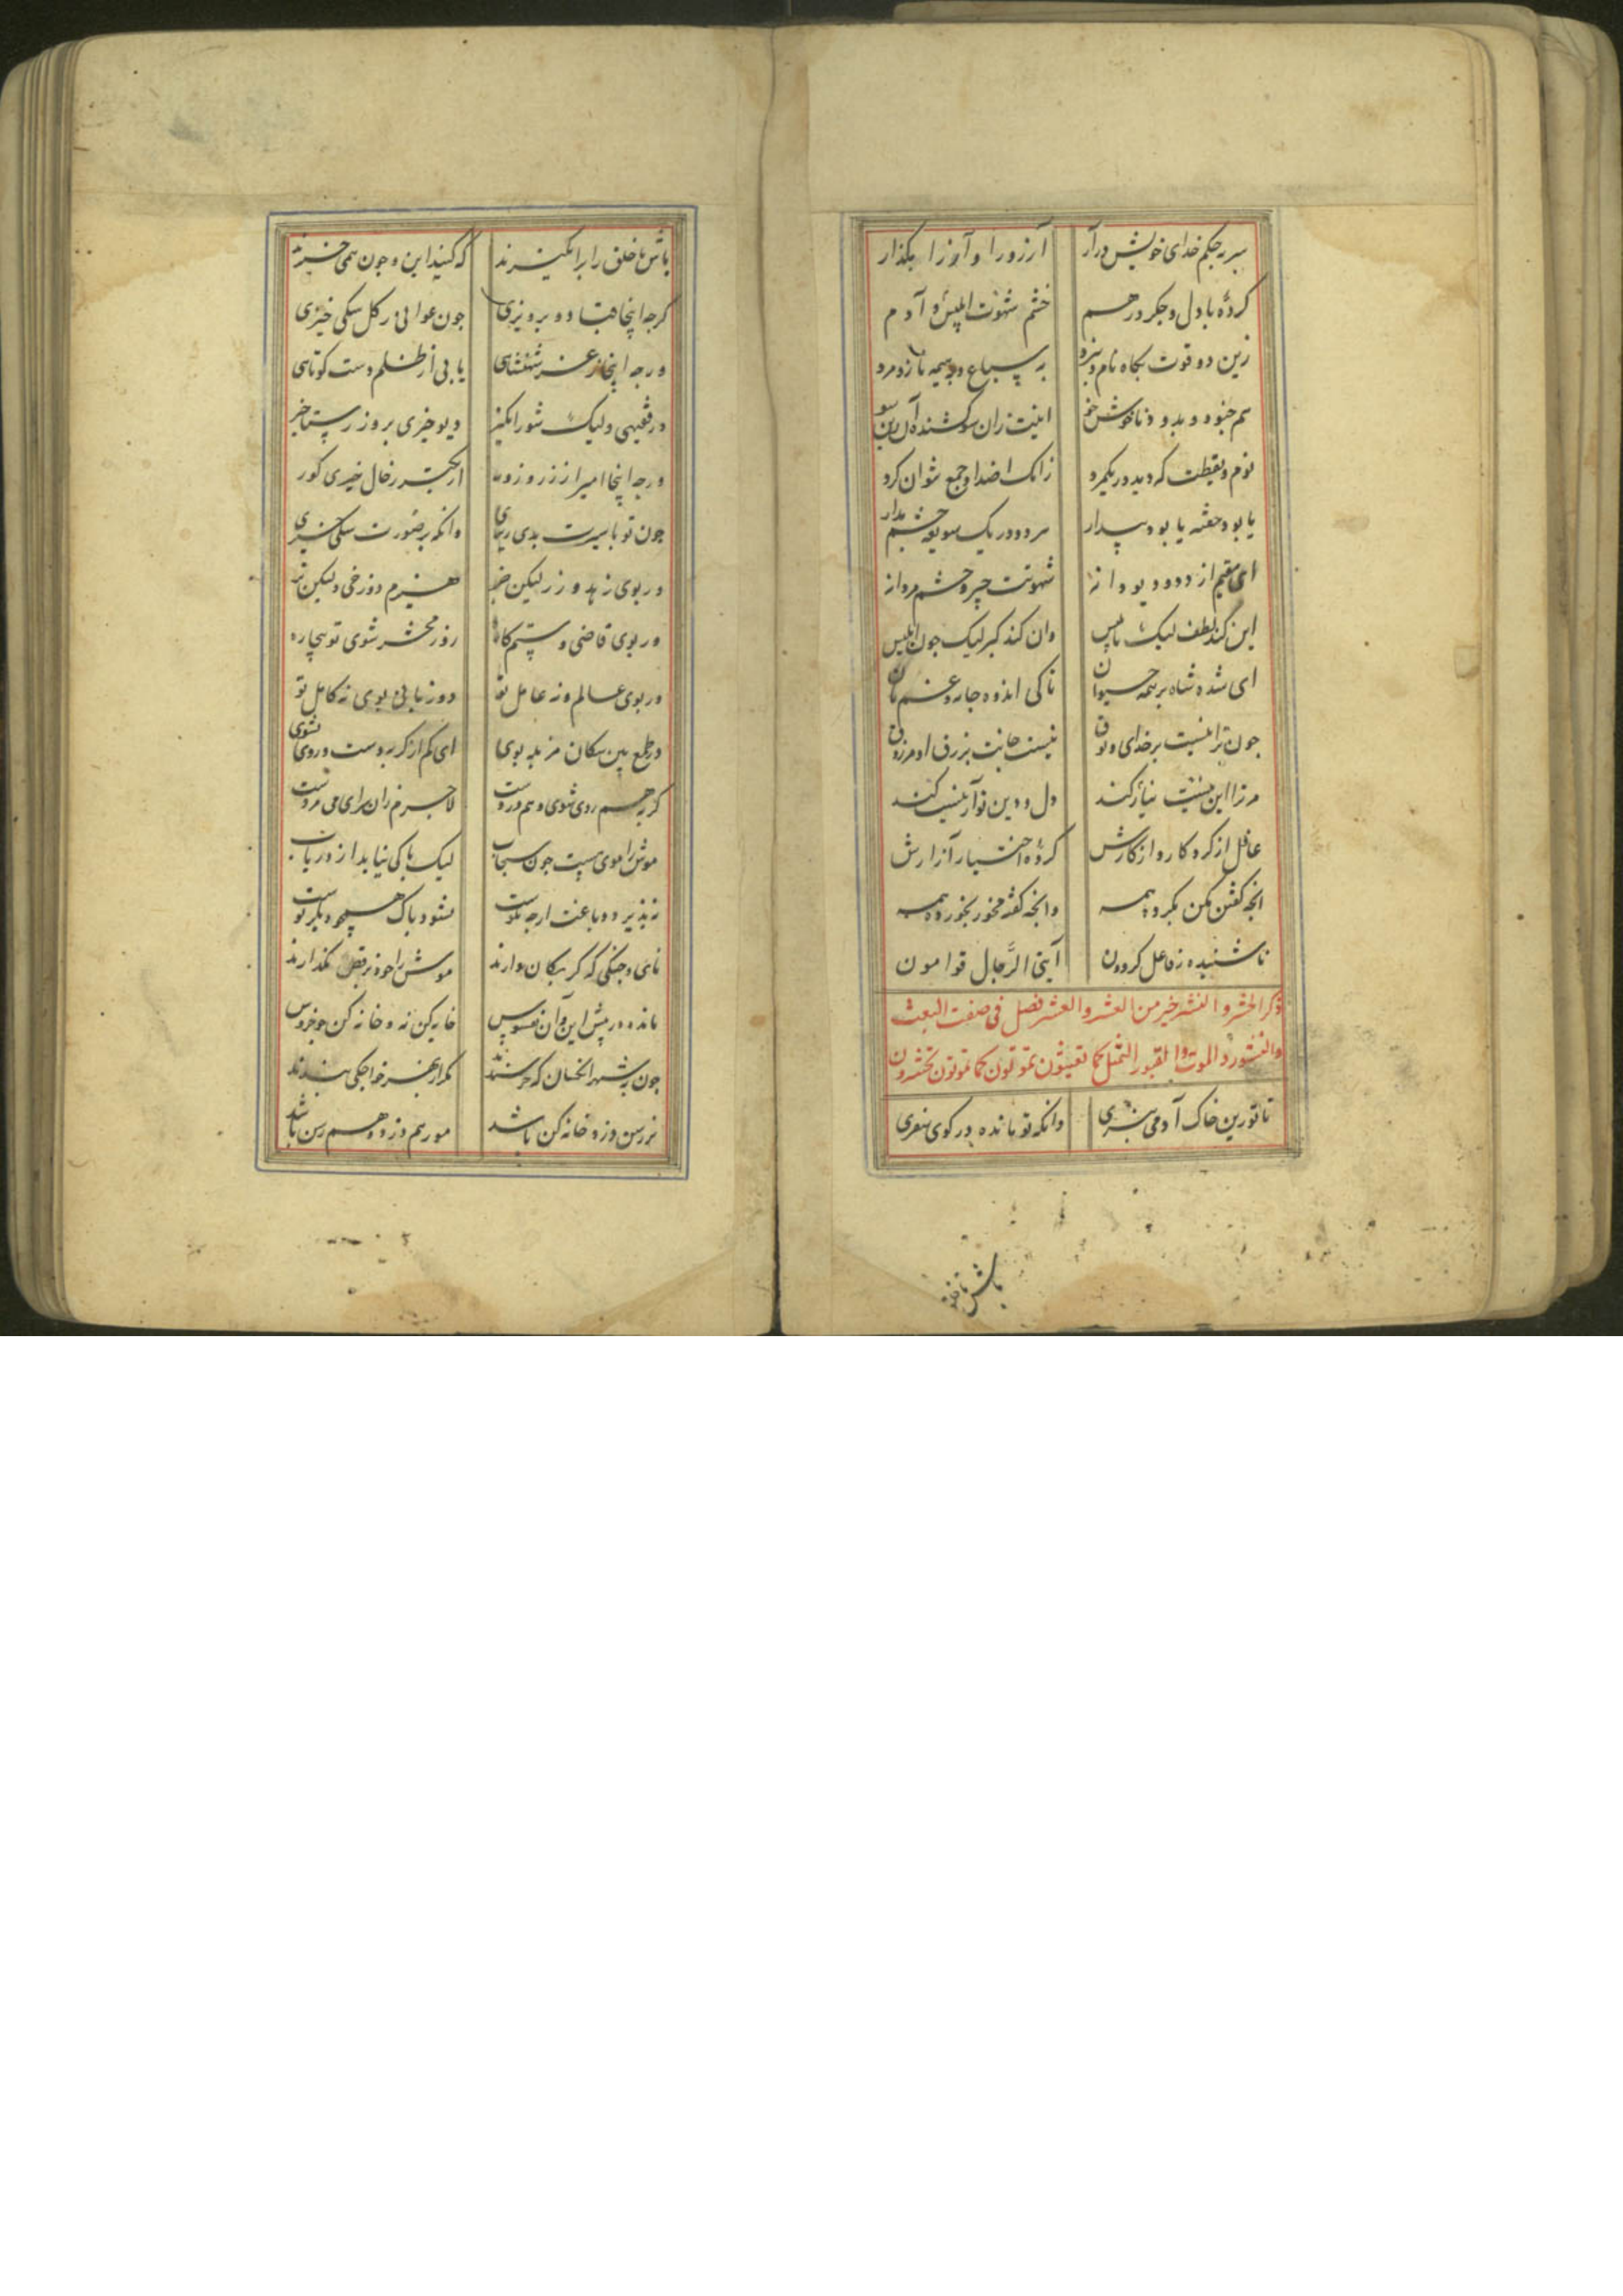 سر بحکم خدای خویش درآر آرزو را و آز را بگذار
کرده با دل و جگر درهم خشم شهوت ابلیس و آدم
زین دو قوت بگاه نام و نبرد به سباع و بهیمه ماند مرد
هم
نوم و یقظت که دید در یکمرد زانک اضداد جمع نتوان کرد
یا بود خفته یا بود بیدار مرد در یک سو
ای مقیم از دو دیو دیوانه شهوتت چیر و خشم مردانه
این کند لطف لیک با وان کند کبر لیک جون ابلیس
ای شده شاه بر همه حیوان تا کی اندوه جامه و غم نان
جون ترا نیست بر خدای وثوق نیست جانت برزق او مرزوق
مر ترا این منیت نیاز کند دل و دین تو
غافل از کرد کار و از کارش کرده اختیار آزارش
انجه گفتن مکن بکرد همه وانجه گفته مخور بخورده همه
ناشنیده ز فاعل کردون آیتی الرّجال قوامون
ذکر الحشر و النشر خیر من العشر و العشر فصل فی صفت البعث
والنشور و الموت و القبور التمثل کما تعیشون تموتون کما تموتون تحشرون
تا تو زین خاک آدمی بنبری وانکه تو مانده در کوی سفری
باش تا خلق
باش تا خلق را برانگیزند که کنید این و جون همی خیزند
گرجه اینجا قباد و پرویزی جون عوانی ز کل سکی خیزی
ورجه اینجا ز عز شهنشاهی یابی از ظلم دست کوتاهی
ور فقیهی ولیک شورانگیز دیو خیزی بروز رستاخیز
ورجه اینجا امیر از زر و زور خیزی کور
جون تو با سیرت بدی وانکه بر صورت سکی خیزی
ور بوی زاهد و زر لیکن هیزم دوزخی ولیکن تر
ور بوی قاضی و ستم کاره روز محشر شوی تو بیچاره
ور بوی عالم و نه عامل تو دوزبانی بوی نه کامل تو
در طمع بین سکان مزبله بوی ای کم از گربه دست و روی بشوی
گربه هم روی شوی و هم دزدست لاجرم زان سرای
موش را موی هست جون سنجاب لیک پاکی نیاید از دریاب
نپذیرد دباغت ارجه نکوست نشود پاک همچو دیگر پوست
نای و جنگی که گربکان دارند موش را خود برقص نگذارند
مانده در پیش این و آن بفسوس خایه کن نه و خانه کن جو خروس
جون به شهر انخسان که خرسندند مکر از بهر خواجکی بندند
نرسن دزد و خانه کن باشد مور هم دزد و هم رسن باشد